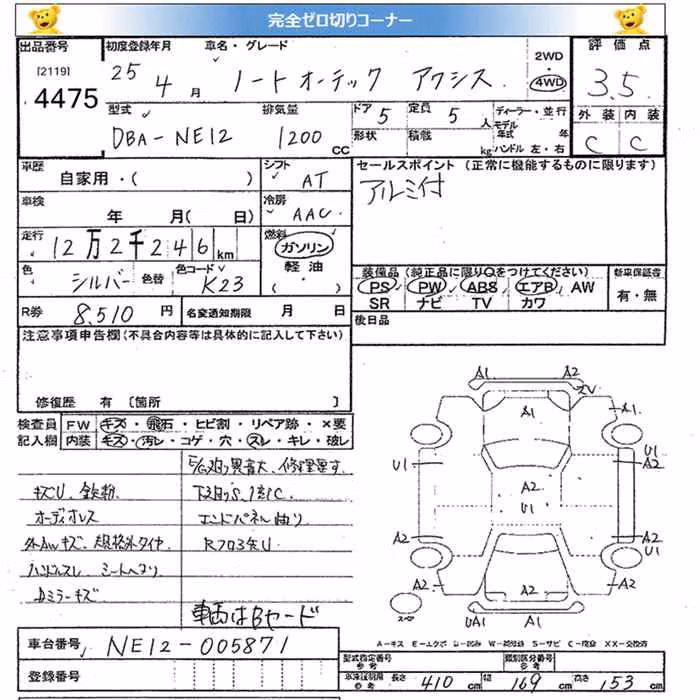 完全ゼロ切りコーナー
出品番号
[2119]
4475
初度登録年月
25年4月
車名・グレード
ノート オーテック アクシス
2WD
・
4WD
評価点
3.5
型式
DBA-NE12
排気量
1200 cc
ドア 5
定員 5 人
形状
積載 kg
ディーラー・並行
モデル年式 年
ハンドル 左・右
外装 内装
C C
車歴
自家用・( )
シフト
AT
セールスポイント (正常に機能するものに限ります)
アルミ付
車検
年 月( 日)
冷房
AAC
走行
12万2千246km
燃料
ガソリン
軽油
( ・ )
色
シルバー
色替
色コードNo
K23
装備品(純正品に限り○をつけてください)
PS PW ABS エアB AW
SR ナビ TV カワ
新車保証書
有・無
R券
8,510円
名変通知期限 月 日
後日品
注意事項申告欄(不具合内容等は具体的に記入して下さい)
修復歴 有 [箇所 ]
検査員記入欄
FW キズ・飛石・ヒビ割・リペア跡・×要
内装 キズ・汚レ・コゲ・穴・スレ・キレ・破レ
キズU、鉄粉
オーディオレス
外AWキズ、規格外タイヤ
ハンドルスレ シートヘタリ
Dミラーキズ
下廻りS、1部C
エンドパネル曲り
車両はBヤード
A1 A2
A1
A1
U1 U1
A2 A2
A2
U1
A2 A2
U1
A2 A2 A2
スペア
UA1 A1
A-キズ E-エクボ U-凹み W-補修跡 S-サビ C-腐食 XX-交換済
車台番号
NE12-005871
登録番号
型式指定番号
参考
類別区分番号
参考
長さ 410 cm 幅 169 cm 高さ 153 cm